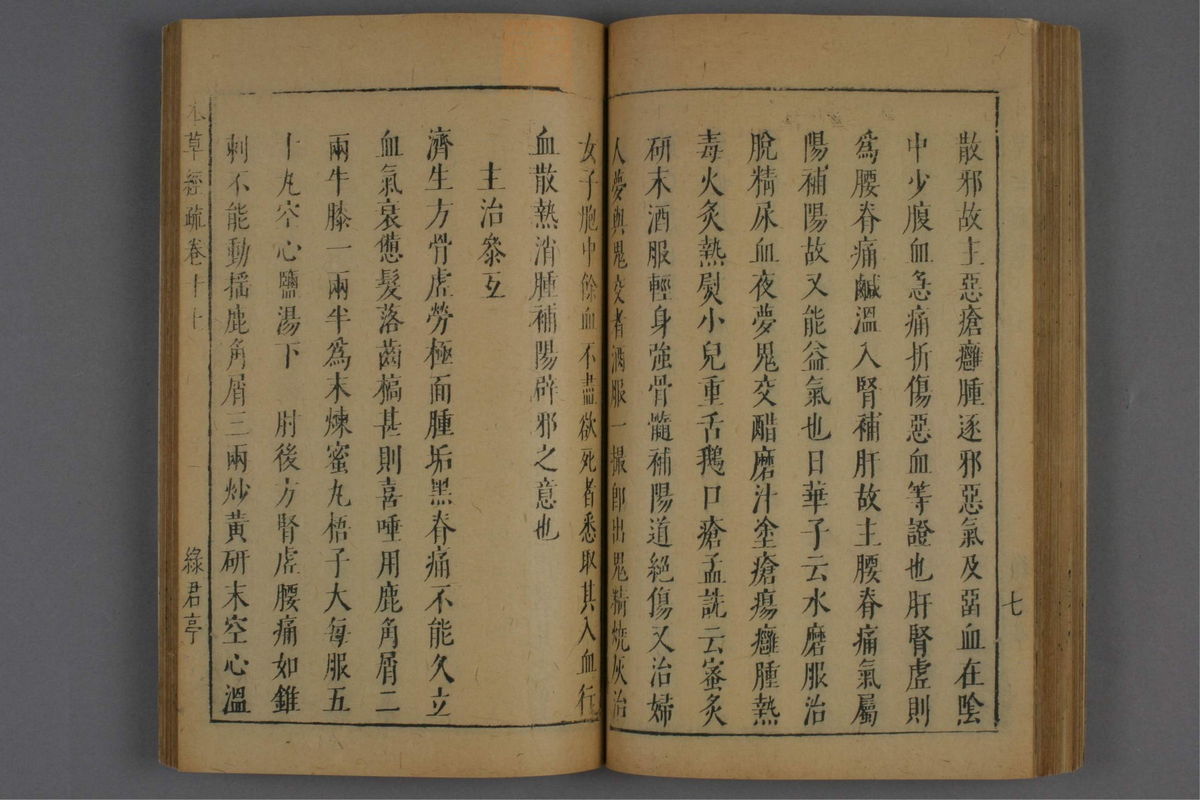 散邪故主惡瘡癰腫逐邪惡氣及畱血在陰
中少腹血急痛折傷惡血等證也肝腎虛則
爲腰脊痛鹹溫入腎補肝故主腰脊痛氣屬
陽補陽故又能益氣也日華子云水磨服治
脫精尿血夜夢鬼交醋磨汁塗瘡瘍癰腫熱
毒火灸熱熨小兒重舌鵝口瘡孟詵云蜜炙
研末酒服輕身強骨髓補陽道絕傷又治婦
人夢與鬼交者酒服一撮卽出鬼精燒灰治
七
女子胞中餘血不盡欲死者悉取其入血行
血散熱消腫補陽辟邪之意也
主治參互
濟生方骨虛勞極面腫垢黑脊痛不能久立
血氣衰憊髮落齒槁甚則喜唾用鹿角屑二
兩牛膝一兩半爲末煉蜜丸梧子大每服五
十丸空心鹽湯下 肘後方腎虛腰痛如錐
刺不能動搖鹿角屑三兩炒黃研末空心溫
本草經疏卷十七
綠君亭